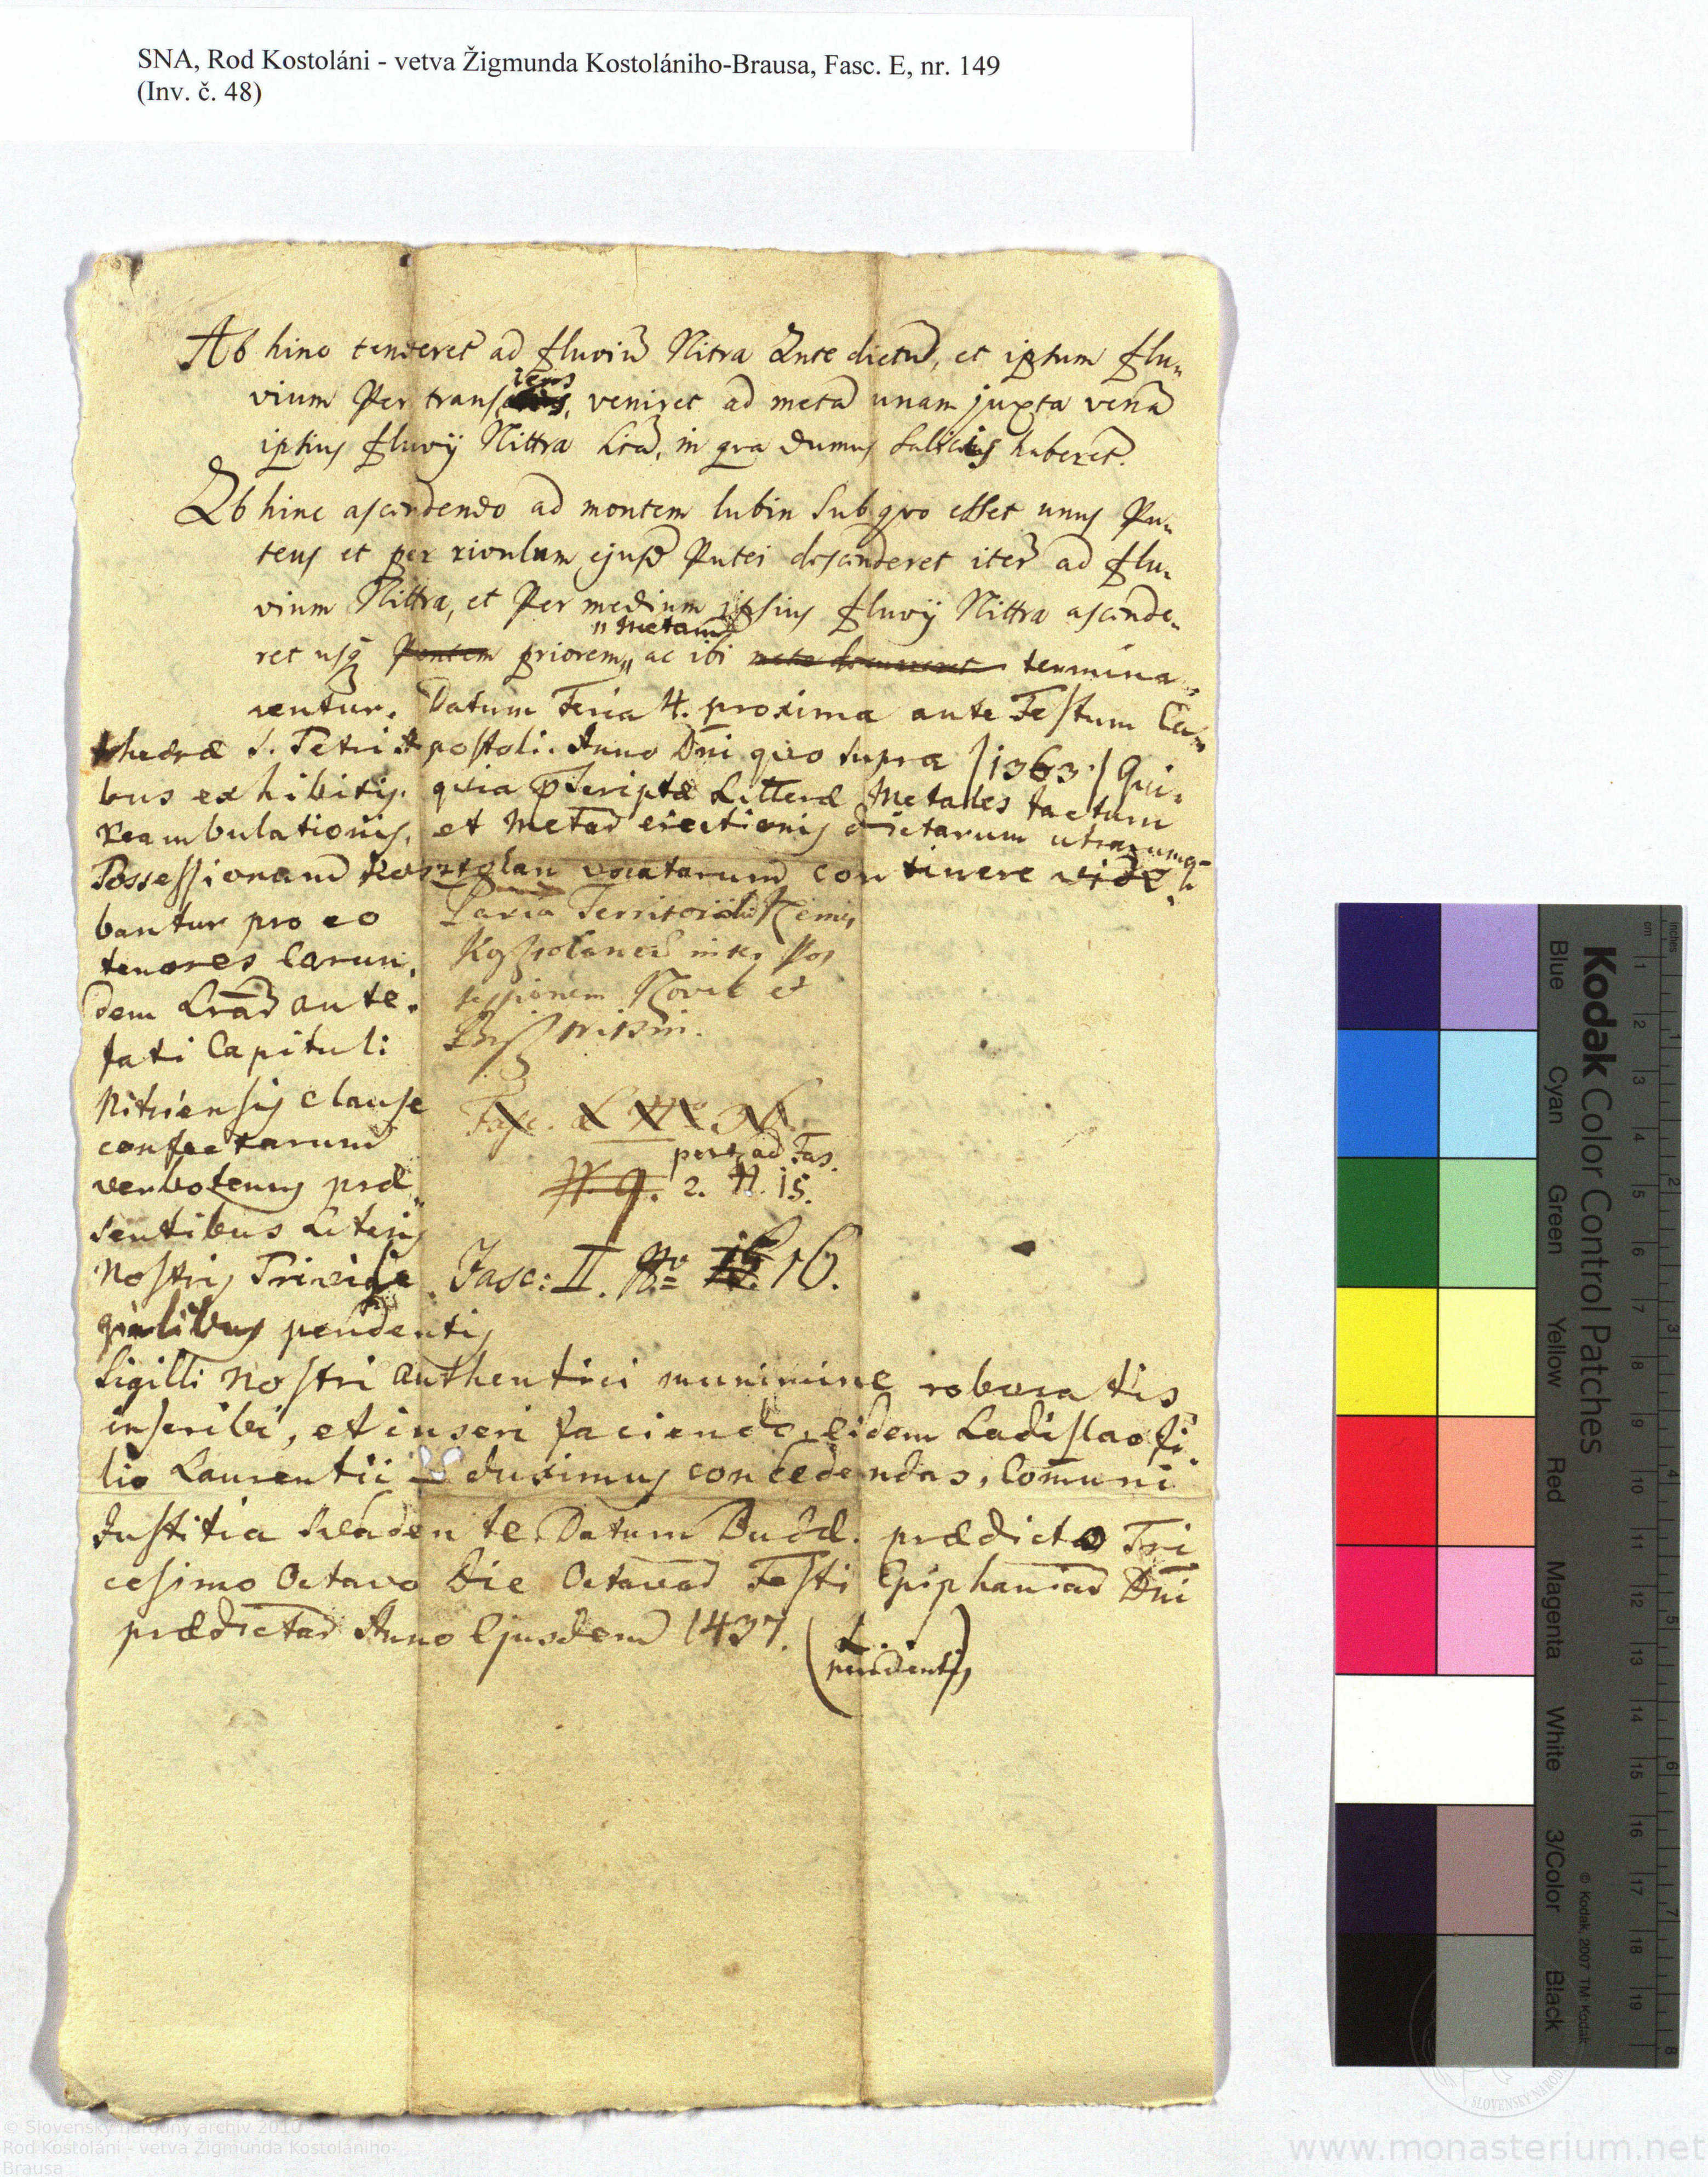 SNA, Rod Kostoláni - vetva Žigmunda Kostolániho-Brausa, Fasc. E, nr. 149
(Inv. č. 48)
Ab hinc tenderet ad fluviũ Nitra Ante dictũ, et ipsum flu„
vium Per trans iens, veniret ad metã unam juxta venã
ipsius fluvÿ Nittra , in qva dumus Salicis haberet.
Ab hinc ascendendo ad montem lubin Sub qvo esset unus Pu„
teus et per rivulum ejusd Putei descenderet iter ad flu„
vium Nittra, et Per medium ipsius fluvÿ Nittra ascende„
ret usq Pontem priorem „metam„ ac ibi termina„
rentur. Datum Feria 4. proxima ante Festum Ca„
thedræ S. Petri Apostoli. Anno Dni quo supra /1363./ Qui„
bus exhibitis. quia Pscriptæ Litteræ Metales factum
reambulationis, et Metar erectionis dictarum utrarumq
Possessionum Kosztolan vocatarum continere vide„
bantur pro eo
tenores Earun„
dem Lrar ante„
fati Capituli
Nitriensis clause
confectarum
verbotenus præ„
sentibus Literis
Nostris Privile„
gialibus pendentis
Territorii Nemes
Kosztolaner inter Pos
sessionem Novek et
Fasc.
pert. ad Fas.
2. N. 15.
Fasc: II. No 15. 16.
Sigilli Nostri authentici munimine roboratis
inscribi, et inseri faciendo, eidem Ladislao fi„
lio Laurentii duximus concedendas, Comuni
Justitia svadente. Datum Budæ. prædicto Tri
cesimo Octavo Die Octavar Festi Epiphaniar Dni
prædictar Anno Ejusdem 1437. (L.
pendentis)
Kodak Color Control Patches
Blue Cyan Green Yellow Red Magenta White 3/Color Black
© Kodak 2007 TM: Kodak
inches 1 2 3 4 5 6 7 8
cm 1 2 3 4 5 6 7 8 9 10 11 12 13 14 15 16 17 18 19
© Slovenský národný archív 2010
Rod Kostoláni - vetva Žigmunda Kostolániho-
Brausa
www.monasterium.net